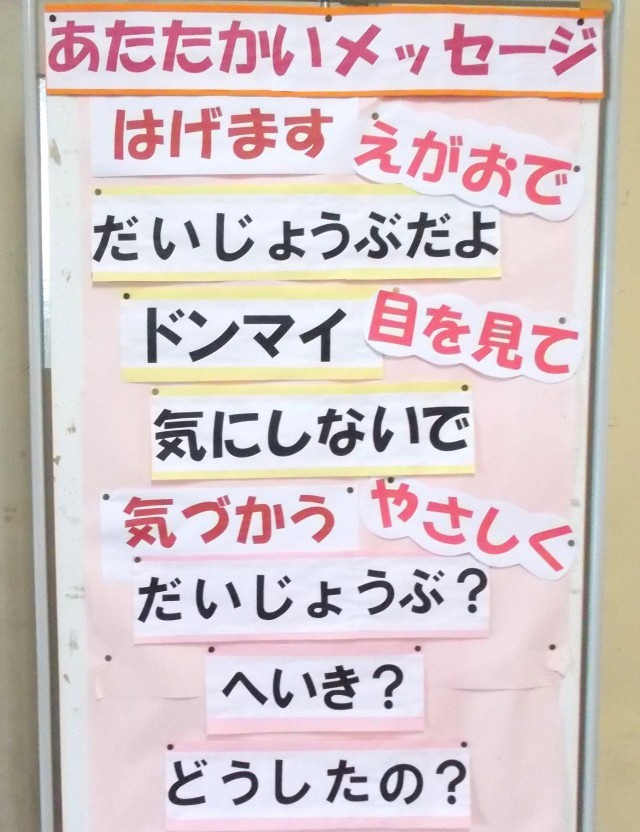 あたたかいメッセージ
はげます
えがおで
だいじょうぶだよ
ドンマイ
目を見て
気にしないで
気づかう
やさしく
だいじょうぶ？
へいき？
どうしたの？